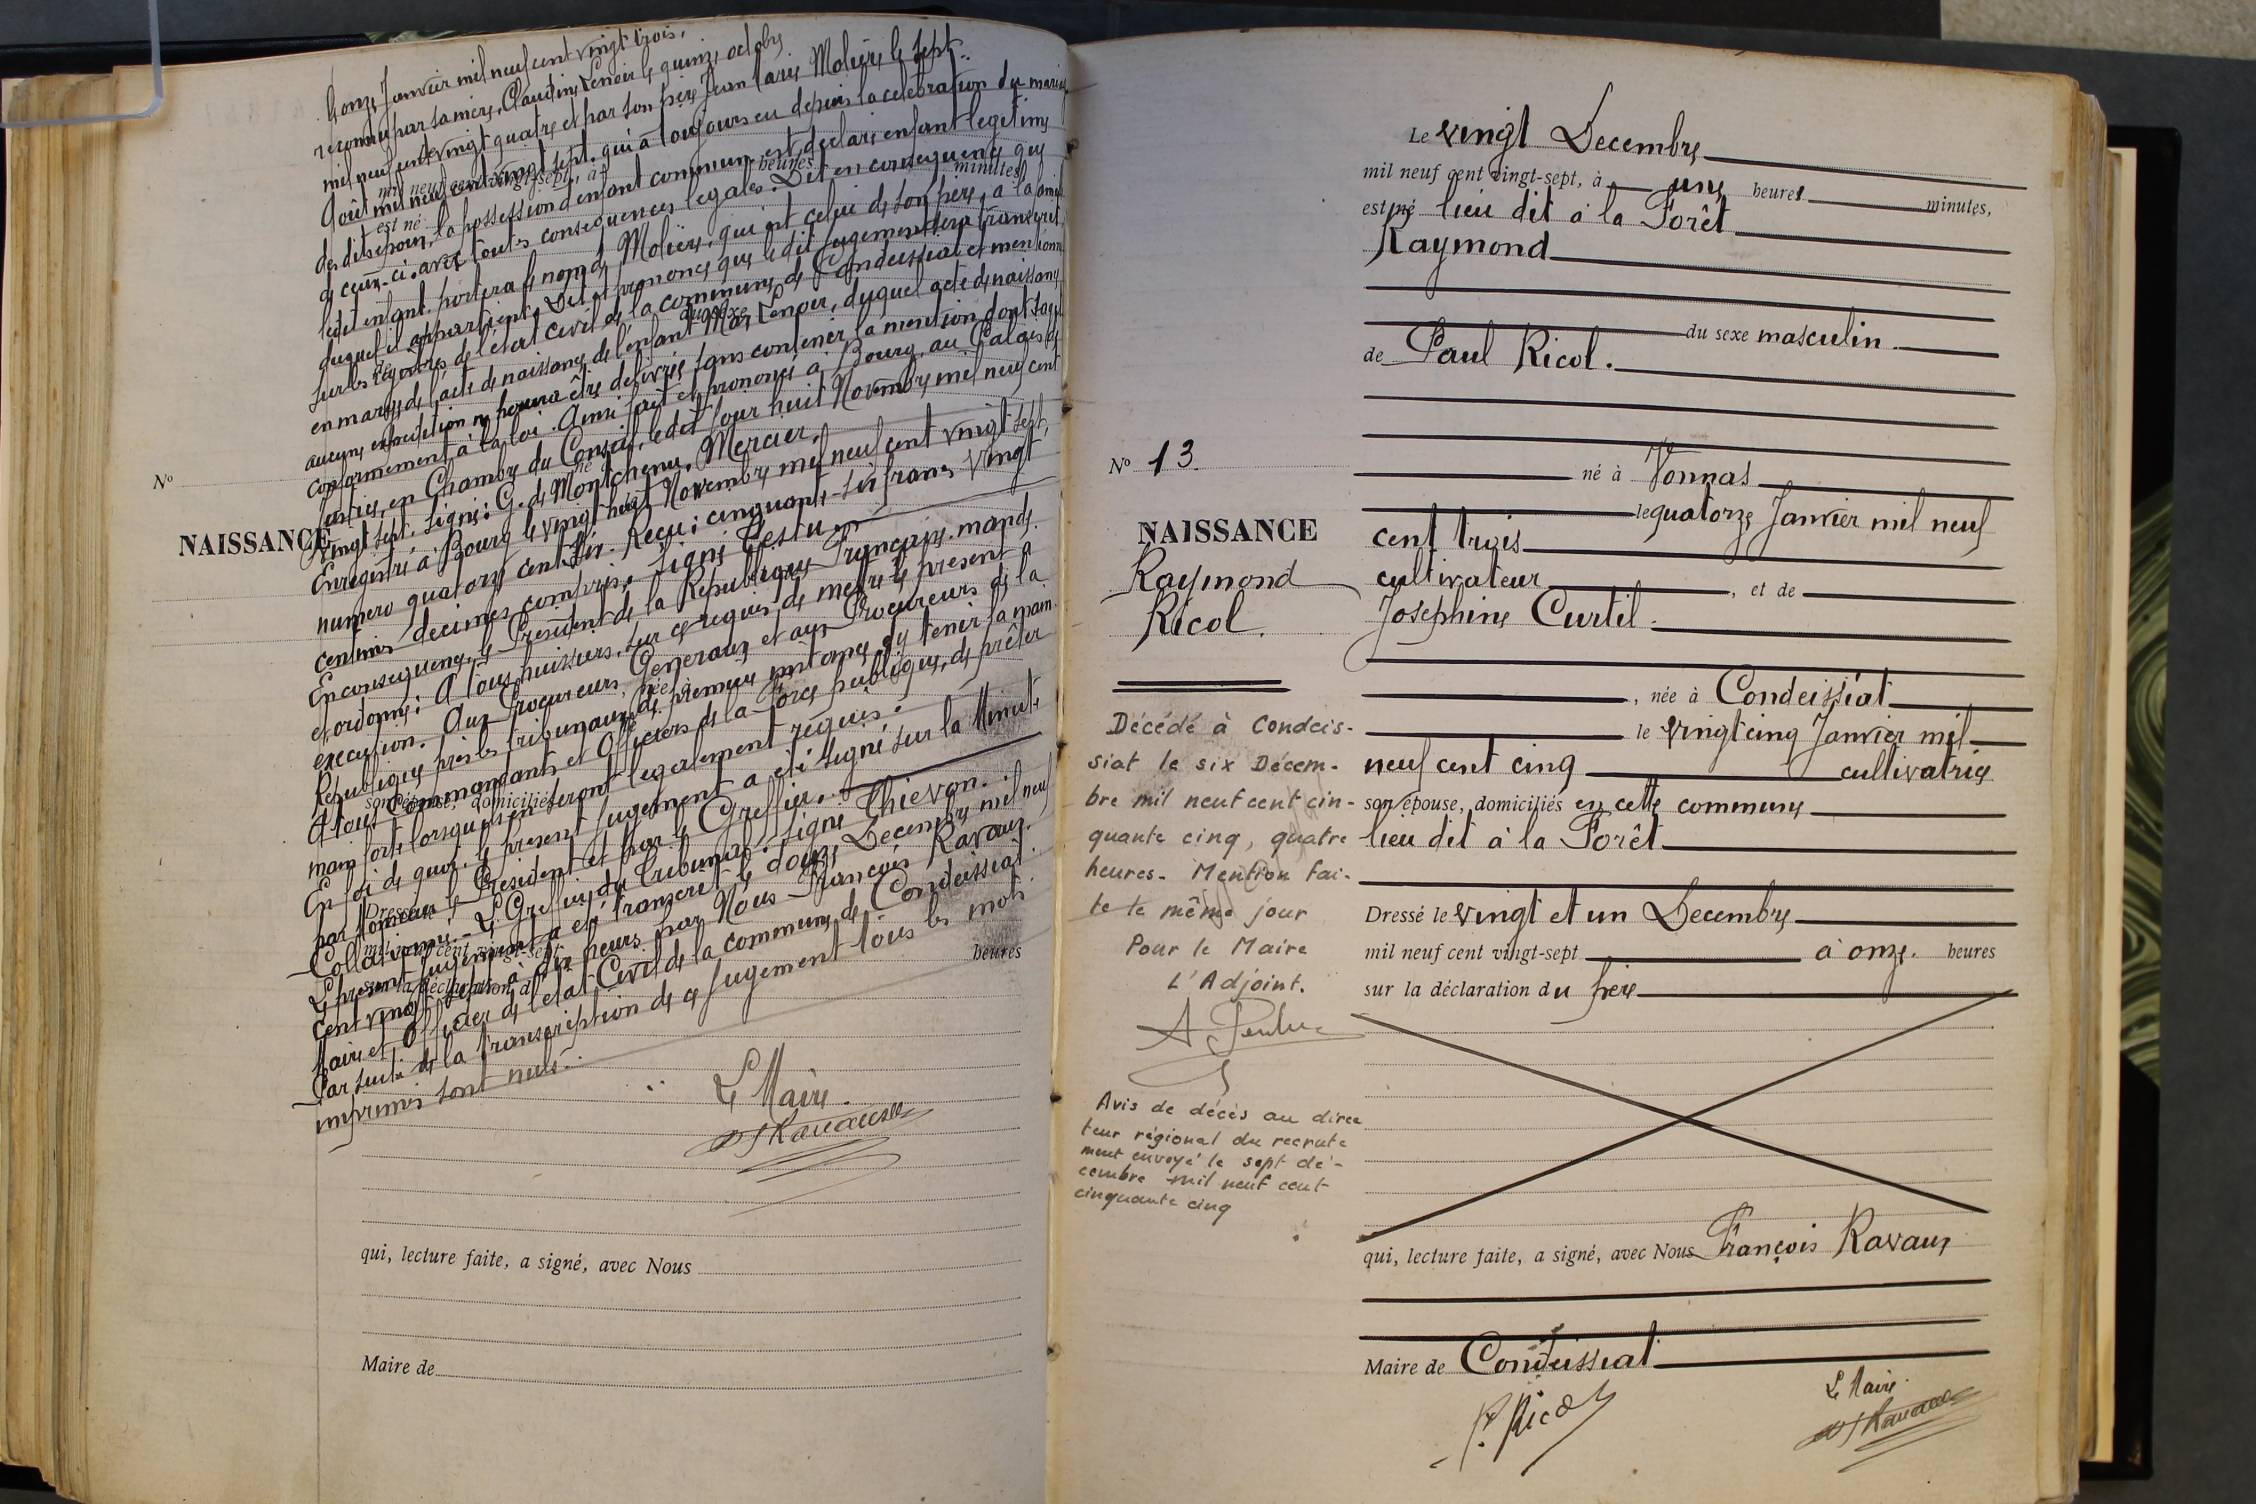 onze Janvier mil neuf cent vingt trois,
reconnu par sa mère, Claudine Lenoir le quinze octobre
mil neuf cent vingt quatre et par son père Jean Molière le sept
Août mil neuf cent vingt sept. qui a toujours eu depuis la celebration du mariage
mil neuf cent vingt-sept, à heures minutes
est né
des dits époux, la possession d'enfant commun est déclaré enfant legitime
de ceux-ci avec toutes consequences legales. Dit en consequence que
ledit enfant portera le nom de Molière, qui est celui de son père, à la famille
duquel il appartient. Dit et prononce que ledit jugement sera transcrit
sur les registres de l'état civil de la commune de Condeissiat et mentionné
du sexe
de
en marge de l'acte de naissance de l'enfant Lenoir, duquel acte de naissance
aucune expedition ne pourra être delivrée sans contenir la mention dont s'agit
conformement à la loi. Ainsi fait et prononcé à Bourg, au Palais de
Justice, en Chambre du Conseil, ledit jour huit Novembre mil neuf cent
vingt sept. Signé: G. de Montchenu. Mercier.
Enregistré à Bourg le vingt huit Novembre mil neuf cent vingt sept,
N°
NAISSANCE
numero quatorze cent six. Reçu: cinquante-six francs vingt
centimes decimes compris. Signé Testu
En consequence, le President de la Republique Française mande
et ordonne: A tous huissiers, sur ce requis de mettre le present à
execution. Aux Procureurs Generaux et aux Procureurs de la
née à
Republique près les tribunaux de première instance d'y tenir la main.
A tous Commandants et Officiers de la Force publique, de prêter
son épouse, domiciliés
main forte lorsqu'ils en seront legalement requis.
En foi de quoi, le present jugement a été signé sur la Minute
par Monsieur le President et par le Greffier.
Dressé le
Collationné. Le Greffier du Tribunal. Signé Thievon.
mil neuf cent vingt-sept heures
Le present jugement a été transcrit le douze Decembre mil neuf
sur la déclaration d
cent vingt sept à dix heures par Nous François Ravaux
Maire et Officier de l'etat Civil de la commune de Condeissiat.
Par suite de la transcription de ce jugement tous les mots
imprimés sont nuls.
Le Maire.
Ravaux
qui, lecture faite, a signé, avec Nous
Maire de
Le vingt Decembre
mil neuf cent vingt-sept, à une heures minutes,
est né lieu dit à la Forêt
Raymond
du sexe masculin
de Paul Ricol.
N° 13
né à Vonnas
le quatorze Janvier mil neuf
NAISSANCE
cent trois
Raymond
Ricol.
cultivateur , et de
Josephine Curtil.
, née à Condeissiat
le vingt cinq Janvier mil
neuf cent cinq cultivatrice
son épouse, domiciliés en cette commune
lieu dit à la Forêt
Dressé le vingt et un Decembre
mil neuf cent vingt-sept à onze. heures
sur la déclaration du père
Décédé à Condeis-
siat le six Décem-
bre mil neuf cent cin-
quante cinq, quatre
heures. Mention fai-
te le même jour
Pour le Maire
L'Adjoint.
Avis de décès au direc
teur régional du recrute
ment envoyé le sept dé-
cembre mil neuf cent
cinquante cinq
qui, lecture faite, a signé, avec Nous François Ravaux
Maire de Condeissiat
P. Ricol
Le Maire.
Ravaux